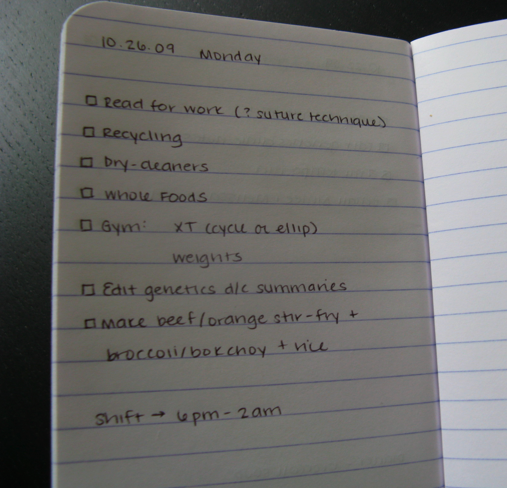 10.26.09 Monday
□ Read for work (? suture technique)
□ Recycling
□ Dry-cleaners
□ Whole Foods
□ Gym: XT (cycle or ellip)
weights
□ Edit genetics d/c summaries
□ Make beef/orange stir-fry +
broccoli/bok choy + rice
shift → 6pm - 2am